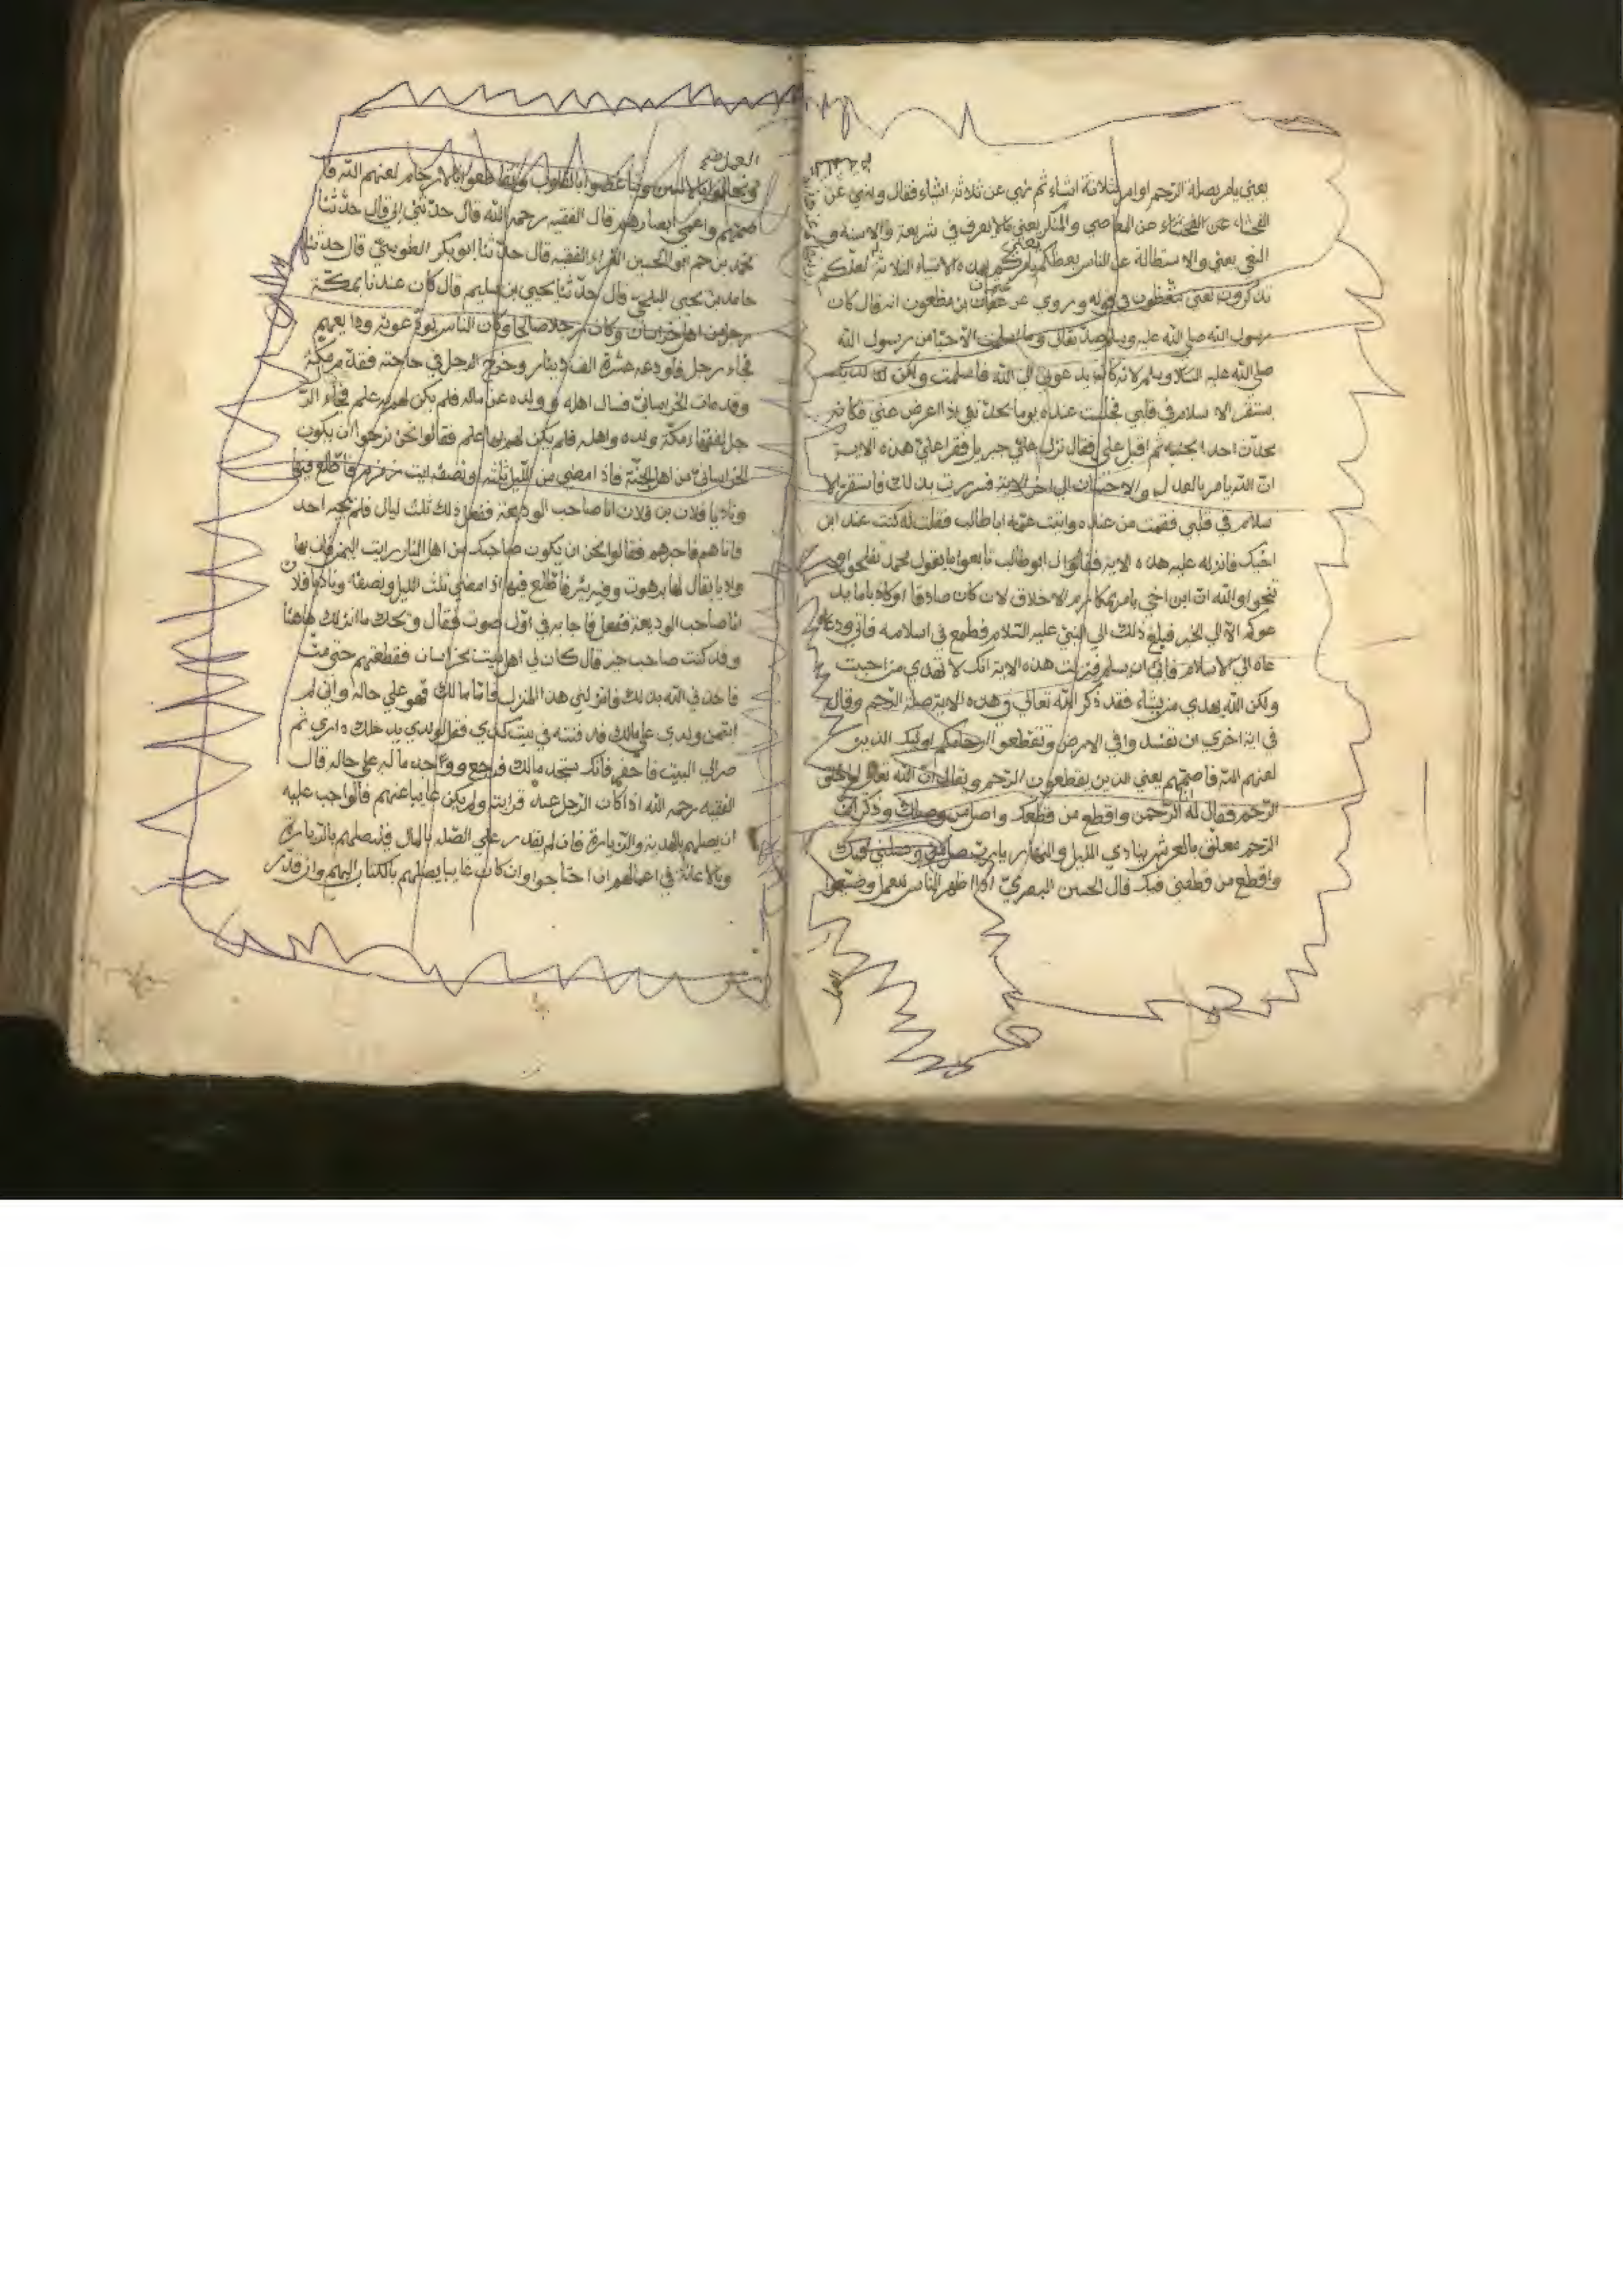 يعني يامر بصلة الرحم اوامر بثلاثة اشياء ثم نهي عن ثلاثة اشياء فقال وينهي عن
الفحشاء عن الفحشاء عن المعاصي والمنكر يعني مالا يعرف في شريعة والاسنة و
البغي يعني والاستطالة عن الناس يعظكم يعني يامركم بهذه الاشياء الثلاثة لعلكم
تذكرون يعني تتعظون في قوله وروي عن عثمان بن مظعون انه قال كان
رسول الله صلي الله عليه وسلم صديقالي وما اسلمت الا حيا من رسول الله
صلي الله عليه السلا وسلم لانه كان يدعوني الي الله فاسلمت ولكن لم يكن
يستقر الاسلام في قلبي فجلست عنده يوما يحدثني اذا اعرض عني فكانه
يحدث احدا بجنبه ثم اقبل علي فقال نزل علي جبريل فقرا علي هذه الاية
ان الله يامر بالعدل والاحسان الي اخر الاية فسررت بذلك فاستقر الا
سلام في قلبي فقمت من عنده واتيت عمه اباطالب فقلت له كنت عند ابن
اخيك فانزله عليه هذه الاية فقال لي ابو طالب تابعوا ما يقول محمد تفلحوا و
تنجوا والله ان ابن اخي يامر بمكارم الاخلاق لان كان صادقا او كاذبا ما يد
عوكم الا الي الخير فبلغ ذلك الي النبي عليه السلام فطمع في اسلامه فاتي ودعاه
عاه الي الاسلام فابي ان يسلم فنزلت هذه الاية انك لا تهدي من احببت
ولكن الله يهدي من يشاء فقد ذكر الله تعالي في هذه الاية صلة الرحم وقال
في اية اخري ان تفسدوا في الارض وتقطعوا ارحامكم اوليك الذين
لعنهم الله فاصمهم يعني الذين يقطعون الرحم ويقال ان الله تعالي لما خلق
الرحم فقال له انا الرحمن واقطع من قطعك واصل من وصلك وذكر ان
الرحم معلق بالعرش ينادي الليل والنهار يارب صل من وصلني فيك
واقطع من قطعني فيك قال الحسن البصري اذا اظهر الناس العلم وضيعوا
العمل
وتحابوا بالالسن وتباغضوا بالقلوب وتقاطعوا بالارحام لعنهم الله فا
صمهم واعمي ابصارهم قال الفقيه رحمه الله قال حدثني ابي قال حدثنا
محمد بن حم ابو الحسين الفراء الفقيه قال حدثنا ابو بكر الطوسي قال حدثنا
حامد بن يحيي البلخي قال حدثنا يحيي بن سليم قال كان عندنا بمكة
رجل من اهل خراسان وكان رجلا صالحا وكان الناس يودعونه ودايعهم
فجاء رجل فاودعه عشرة الف دينار وخرج الرجل في حاجته فقدم مكة
وقد مات الخرساني فسال اهله وولده عن ماله فلم يكن لهم به علم فجاء الر
جل لفقهاء مكة ولده واهله فلم يكن لهم بها علم فقالوا نحن نرجوا ان يكون
الخراساني من اهل الجنة فاذا مضي من الليل ثلثه او نصفه ايت زمزم فاطلع فيها
وناد يا فلان بن فلان انا صاحب الوديعة ففعل ذلك ثلث ليال فلم يجبه احد
فاتاهم فاخبرهم فقالوا نحن ان يكون صاحبك من اهل النار رايت اليمن فان بها
واديا يقال لها برهوت وفيه بئر فاطلع فيها اذا مضي ثلث الليل ونصفه وناد يا فلان
انا صاحب الوديعة ففعل فاجابه في اول صوت فقال ويحك ما انزلك هاهنا
وقد كنت صاحب خير قال كان لي اهل بيت بخراسان فقطعتهم حتي مت
فاخذني الله بذلك فانزلني هذا المنزل فاما مالك فهو علي حاله واني لم
ايتمن ولدي علي مالك قد دفنته في بيت كذي فقل لولدي يدخلك داري ثم
صر الي البيت فاحفر فانك ستجد مالك فرجع ووجد ماله علي حاله قال
الفقيه رحمه الله اذا كان الرجل عند قرابته ولم يكن غايبا عنهم فالواجب عليه
ان يصلهم بالهدية والزيارة فان لم يقدر علي الصلة بالمال فليصلهم بالزيارة
وبالاعانة في اعمالهم ان احتاجوا وان كان غايبا يصلهم بالكتاب اليهم وان قدر
العمل